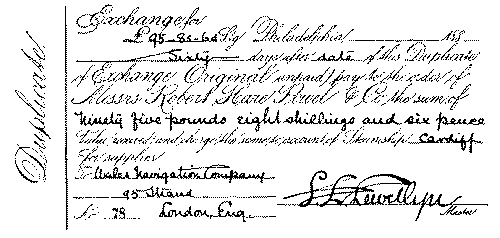 Duplicate
Exchange for
£ 95-8s-6d Stg Philadelphia 188
Sixty days after date of this Duplicate
of Exchange Original unpaid pay to the order of
Messrs Robert Hare Powel & Co the sum of
Ninety five pounds eight shillings and six pence
Value received and charge the same to account of Steamship Cardiff
for supplies
To Wales Navigation Company
95 Strand
No 78 London, Eng.
Master